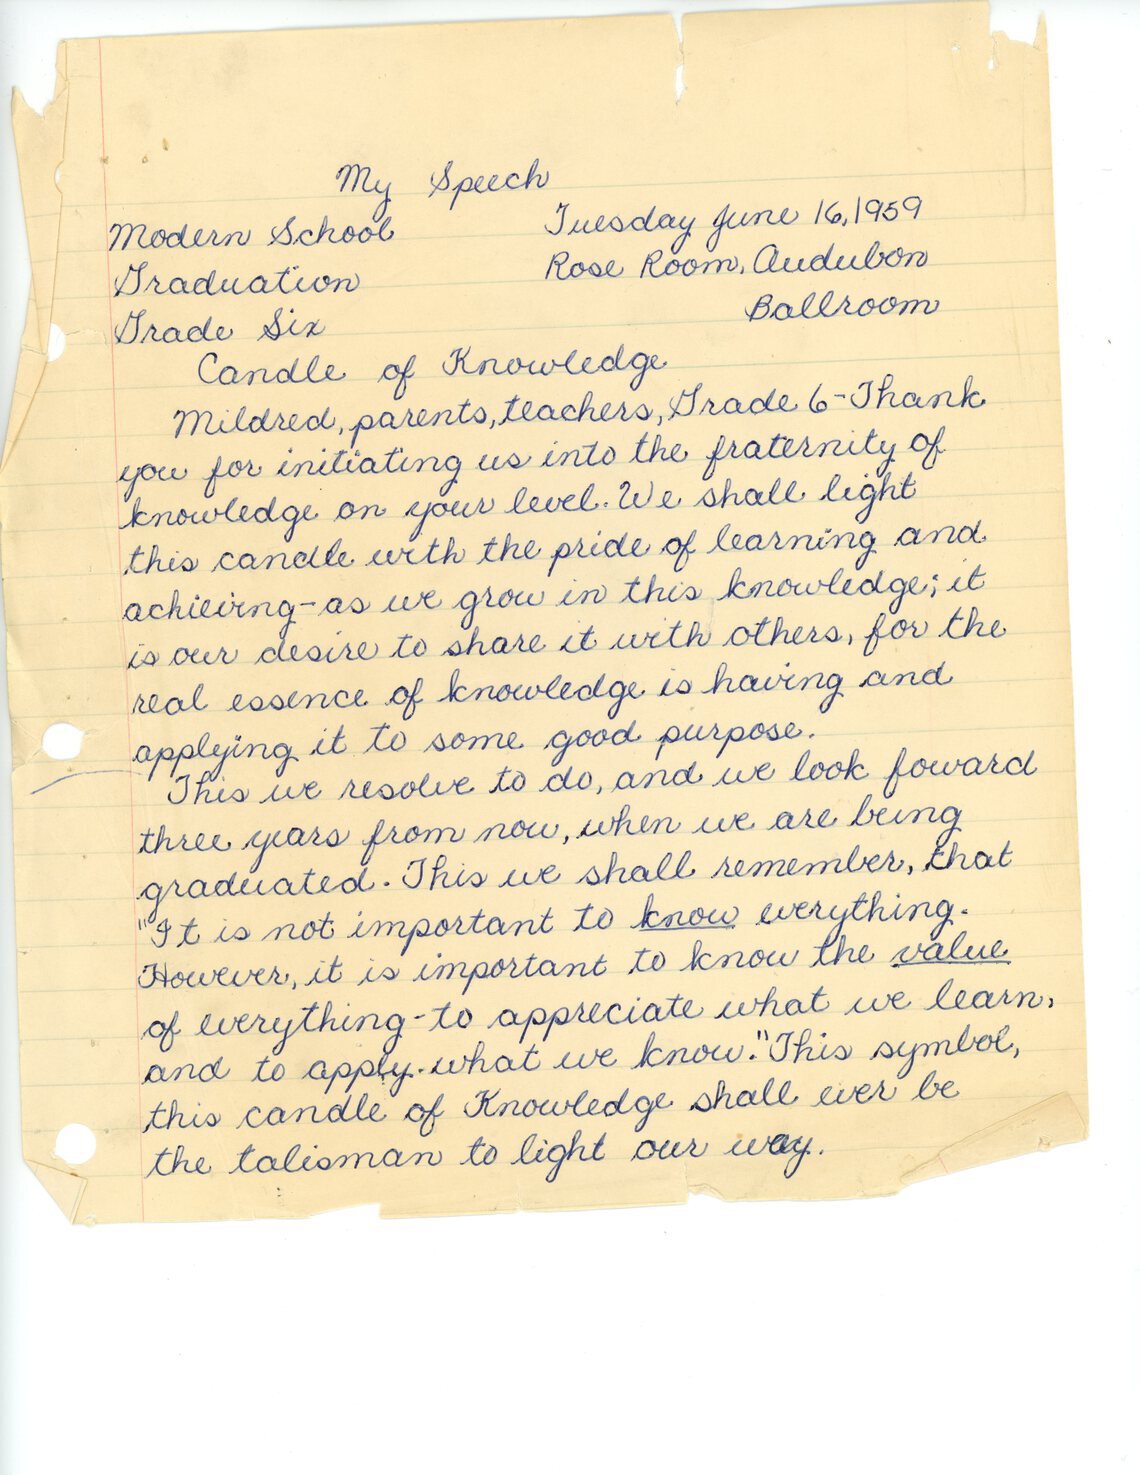 My Speech
Modern School Tuesday June 16, 1959
Graduation Rose Room, Audubon
Grade Six Ballroom
Candle of Knowledge
Mildred, parents, teachers, Grade 6-Thank
you for initiating us into the fraternity of
knowledge on your level. We shall light
this candle with the pride of learning and
achieving-as we grow in this knowledge; it
is our desire to share it with others, for the
real essence of knowledge is having and
applying it to some good purpose.
This we resolve to do, and we look foward
three years from now, when we are being
graduated. This we shall remember, that
"It is not important to know everything.
However, it is important to know the value
of everything-to appreciate what we learn,
and to apply what we know." This symbol,
this candle of Knowledge shall ever be
the talisman to light our way.